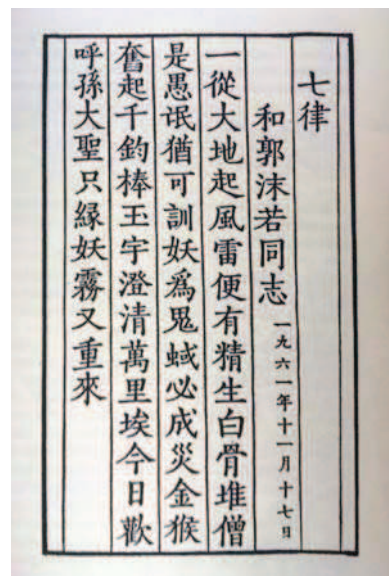 七律
和郭沫若同志 一九六一年十一月十七日
一從大地起風雷便有精生白骨堆僧
是愚氓猶可訓妖爲鬼蜮必成災金猴
奮起千鈞棒玉宇澄清萬里埃今日歡
呼孫大聖只緣妖霧又重來